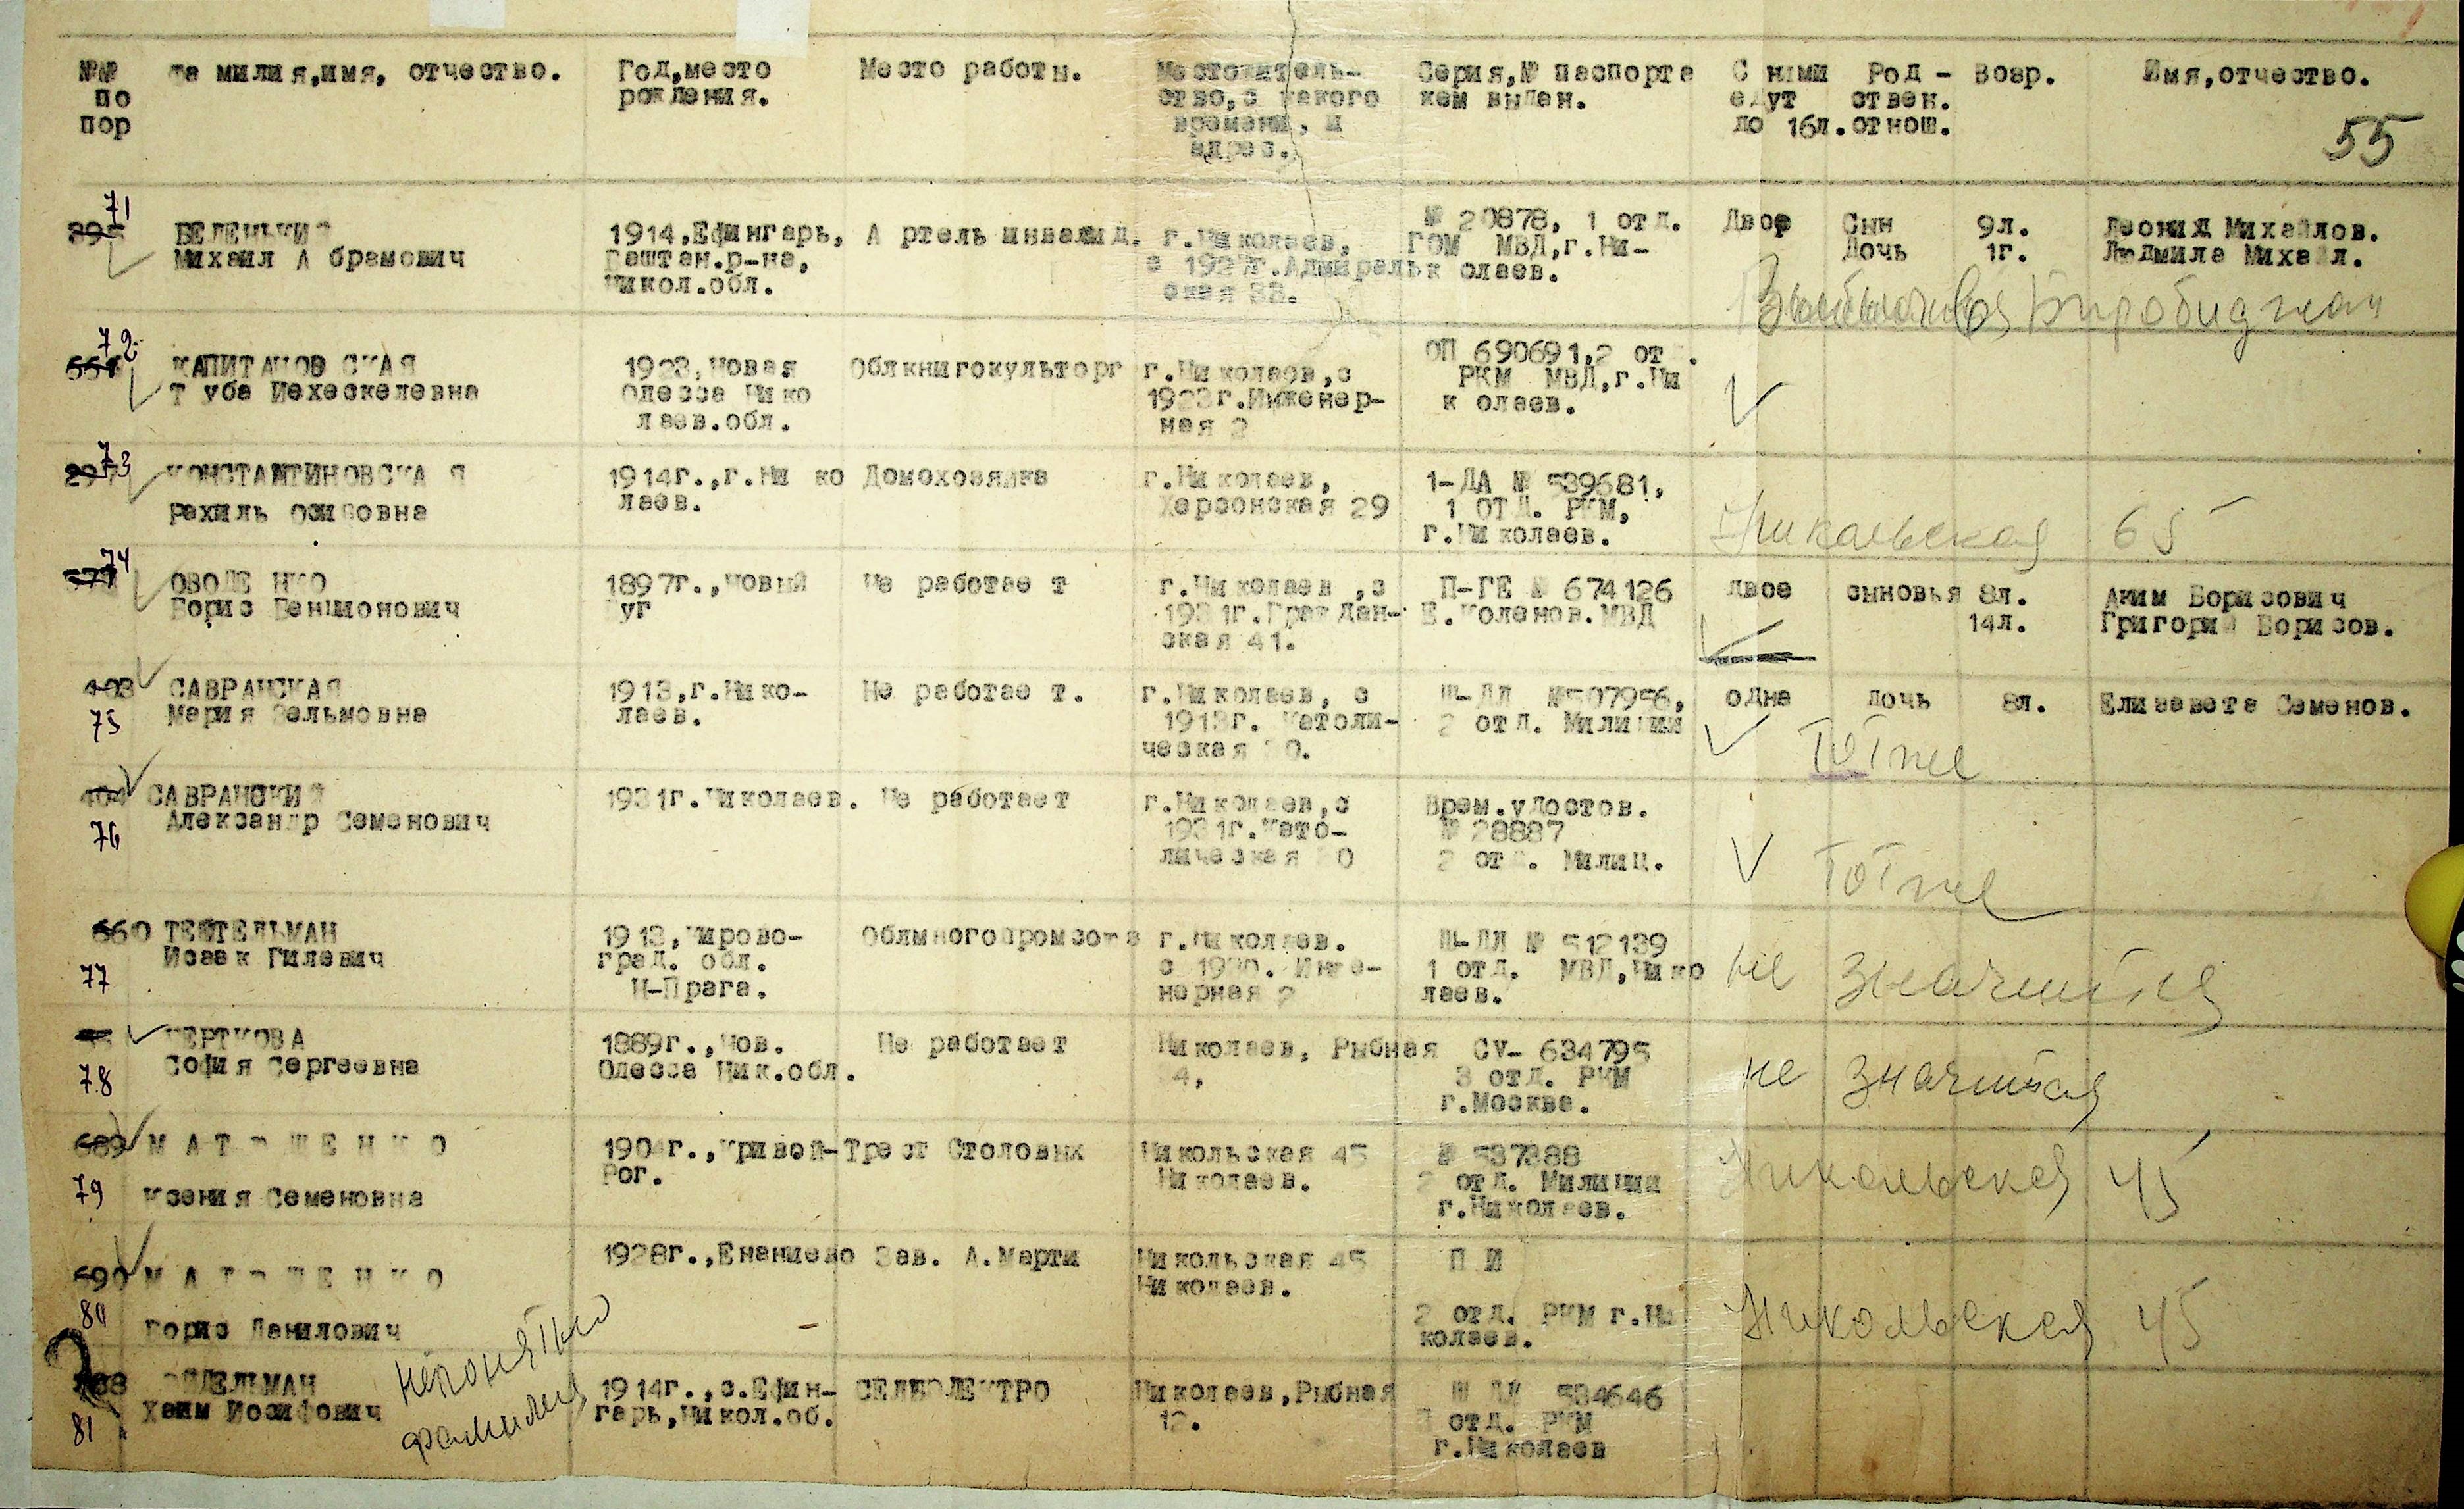 №№ Фамилия,имя, отчество. Год,место Место работы. Местожитель- Серия,№ паспорта С ними Род - Возр. Имя,отчество.
по рождения. ство,с какого кем выдан. едут ствен.
пор времени, и до 16л. отнош.
адрес.
55
71
395 БЕЛЕНЬКИЙ 1914,Ефингарь, Артель инвалид. г.Николаев, № 20878, 1 отд. Двое Сын 9л. Леонид Михайлов.
Михаил Абрамович Баштан.р-на, с 1927г.Адмираль ГОМ МВД,г.Ни- Дочь 1г. Людмила Михайл.
Никол.обл. ская 33. колаев.
Биробиджан
72
КАПИТАНОВСКАЯ 1923,Новая Облкнигокультторг г.Николаев,с ОП 690691,2 от.
Туба Иехескелевна Одесса Нико 1923г.Инженер- РКМ МВД,г.Ни
лаев.обл. ная 2 колаев.
73
297 КОНСТАНТИНОВСКАЯ 1914г.,г.Нико Домохозяйка г.Николаев, 1-ДА № 539681,
Рахиль Осиповна лаев. Херсонская 29 1 ОТД. РКМ,
г.Николаев.
Никольская 65
74
577 ОВОДЕНКО 1897г.,Новый Не работает г.Николаев ,с П-ГЕ № 674126 двое сыновья 8л. Аким Борисович
Борис Бенционович Буг 1931г.Граждан- Е.Коленов.МВД 14л. Григорий Борисов.
ская 41.
403 САВРАНСКАЯ 1913,г.Нико- Не работает. г.Николаев, с Ш-ДЛ №507956, одна дочь 8л. Елизавета Семенов.
75 Мария Зельмовна лаев. 1913г. Католи- 2 отд. Милиции
ческая 20.
Тот же
404 САВРАНСКИЙ 1931г.Николаев. Не работает г.Николаев,с Врем.удостов.
76 Александр Семенович 1931г.Като- № 28887
лическая 20 2 отд. Милиц.
Тот же
660 ТЕСТЕЛЬМАН 1913,Кирово- Облмногопромсоюз г.Николаев. Ш-ДЛ № 512139
77 Исаак Гилевич град. обл. с 1930. Инже- 1 отд. МВД,Нико
Н-Прага. нерная 2 лаев.
не значится
ЧЕРТКОВА 1889г.,Нов. Не работает Николаев, Рыбная СУ- 634795
78 София Сергеевна Одесса Ник.обл. 4, 3 отд. РКМ
г.Москва.
не значится
689 М А Т Ю Ш Е Н К О 1904г.,Кривой- Трест Столовых Никольская 45 № 537388
79 Ксения Семеновна Рог. Николаев. 2 отд. Милиции
г.Николаев.
Никольская 45
690 М А Т Ю Ш Е Н К О 1928г.,Енакиево Зав. А.Марти Никольская 45 П И
80 Борис Данилович Николаев. 2 отд. РКМ г.Ни
колаев.
Никольская 45
ЕЙДЕЛЬМАН 1914г.,с.Ефин- СЕЛЬЭЛЕКТРО Николаев,Рыбная Ш ДЛ 534646
81 Хаим Иосифович гарь,Никол.об. 12. отд. РКМ
г.Николаев
непонятно
фамилия